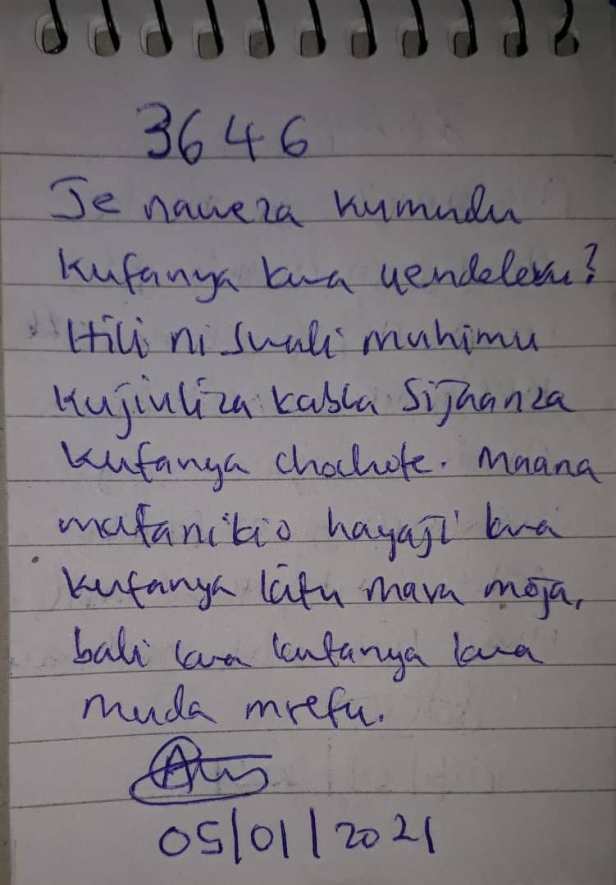 3646
Je naweza kumudu
kufanya kwa uendelevu?
Hili ni swali muhimu
kujiuliza kabla sijaanza
kufanya chochote. Maana
mafanikio hayaji kwa
kufanya kitu mara moja,
bali kwa kufanya kwa
muda mrefu.
05/01/2021